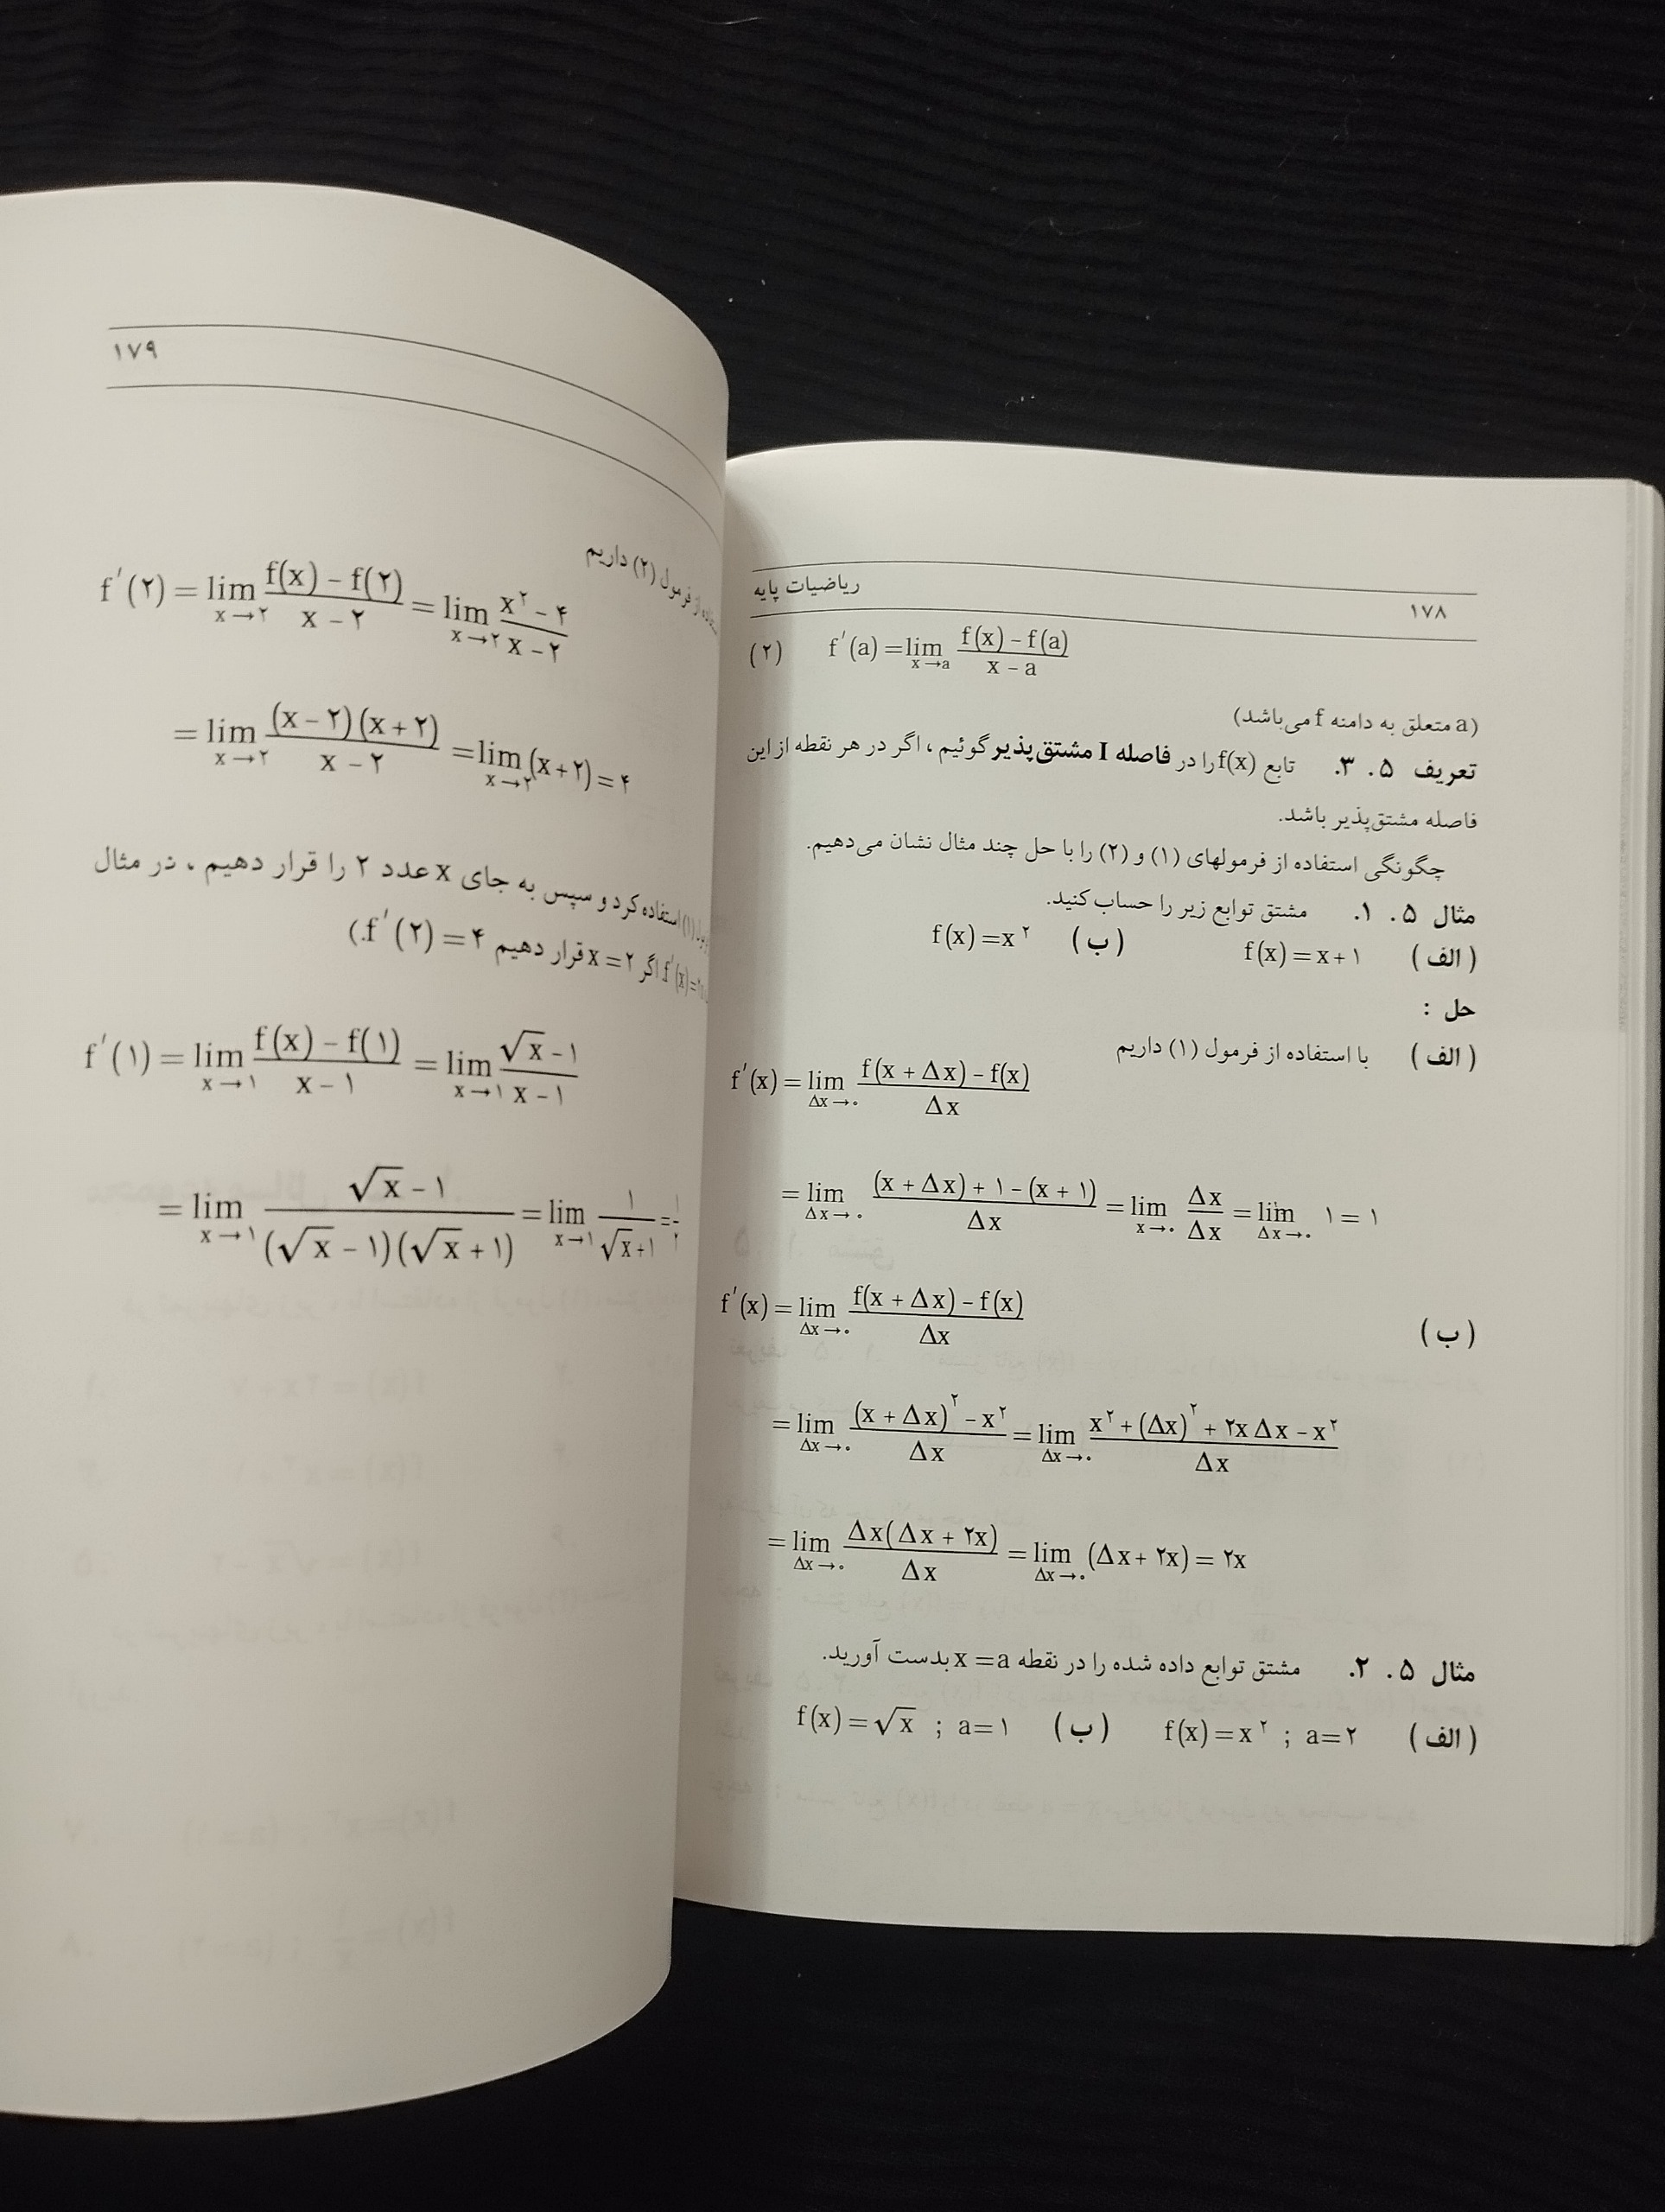 ریاضیات پایه ۱۷۸
(۲) f′(a) = lim x→a (f(x) – f(a)) / (x – a)
(a متعلق به دامنه f می‌باشد)
تعریف ۵ . ۳. تابع f(x) را در فاصله I مشتق‌پذیر گوئیم ، اگر در هر نقطه از این
فاصله مشتق‌پذیر باشد.
چگونگی استفاده از فرمولهای (۱) و (۲) را با حل چند مثال نشان می‌دهیم.
مثال ۵ . ۱. مشتق توابع زیر را حساب کنید.
(الف) f(x) = x + ۱ (ب) f(x) = x^۲
حل :
(الف) با استفاده از فرمول (۱) داریم
f′(x) = lim Δx→۰ (f(x + Δx) – f(x)) / Δx
= lim Δx→۰ ((x + Δx) + ۱ – (x + ۱)) / Δx = lim x→۰ Δx / Δx = lim Δx→۰ ۱ = ۱
(ب) f′(x) = lim Δx→۰ (f(x + Δx) – f(x)) / Δx
= lim Δx→۰ ((x + Δx)^۲ – x^۲) / Δx = lim Δx→۰ (x^۲ + (Δx)^۲ + ۲x Δx – x^۲) / Δx
= lim Δx→۰ Δx(Δx + ۲x) / Δx = lim Δx→۰ (Δx + ۲x) = ۲x
مثال ۵ . ۲. مشتق توابع داده شده را در نقطه x = a بدست آورید.
(الف) f(x) = x^۲ ; a = ۲ (ب) f(x) = √x ; a = ۱
۱۷۹
از فرمول (۲) داریم
f′(۲) = lim x→۲ (f(x) – f(۲)) / (x – ۲) = lim x→۲ (x^۲ – ۴) / (x – ۲)
= lim x→۲ (x – ۲)(x + ۲) / (x – ۲) = lim x→۲ (x + ۲) = ۴
(۱) استفاده کرد و سپس به جای x عدد ۲ را قرار دهیم ، در مثال
f′(x) = اگر x = ۲ قرار دهیم f′(۲) = ۴.)
f′(۱) = lim x→۱ (f(x) – f(۱)) / (x – ۱) = lim x→۱ (√x – ۱) / (x – ۱)
= lim x→۱ (√x – ۱) / ((√x – ۱)(√x + ۱)) = lim x→۱ ۱ / (√x + ۱) = ۱/۲